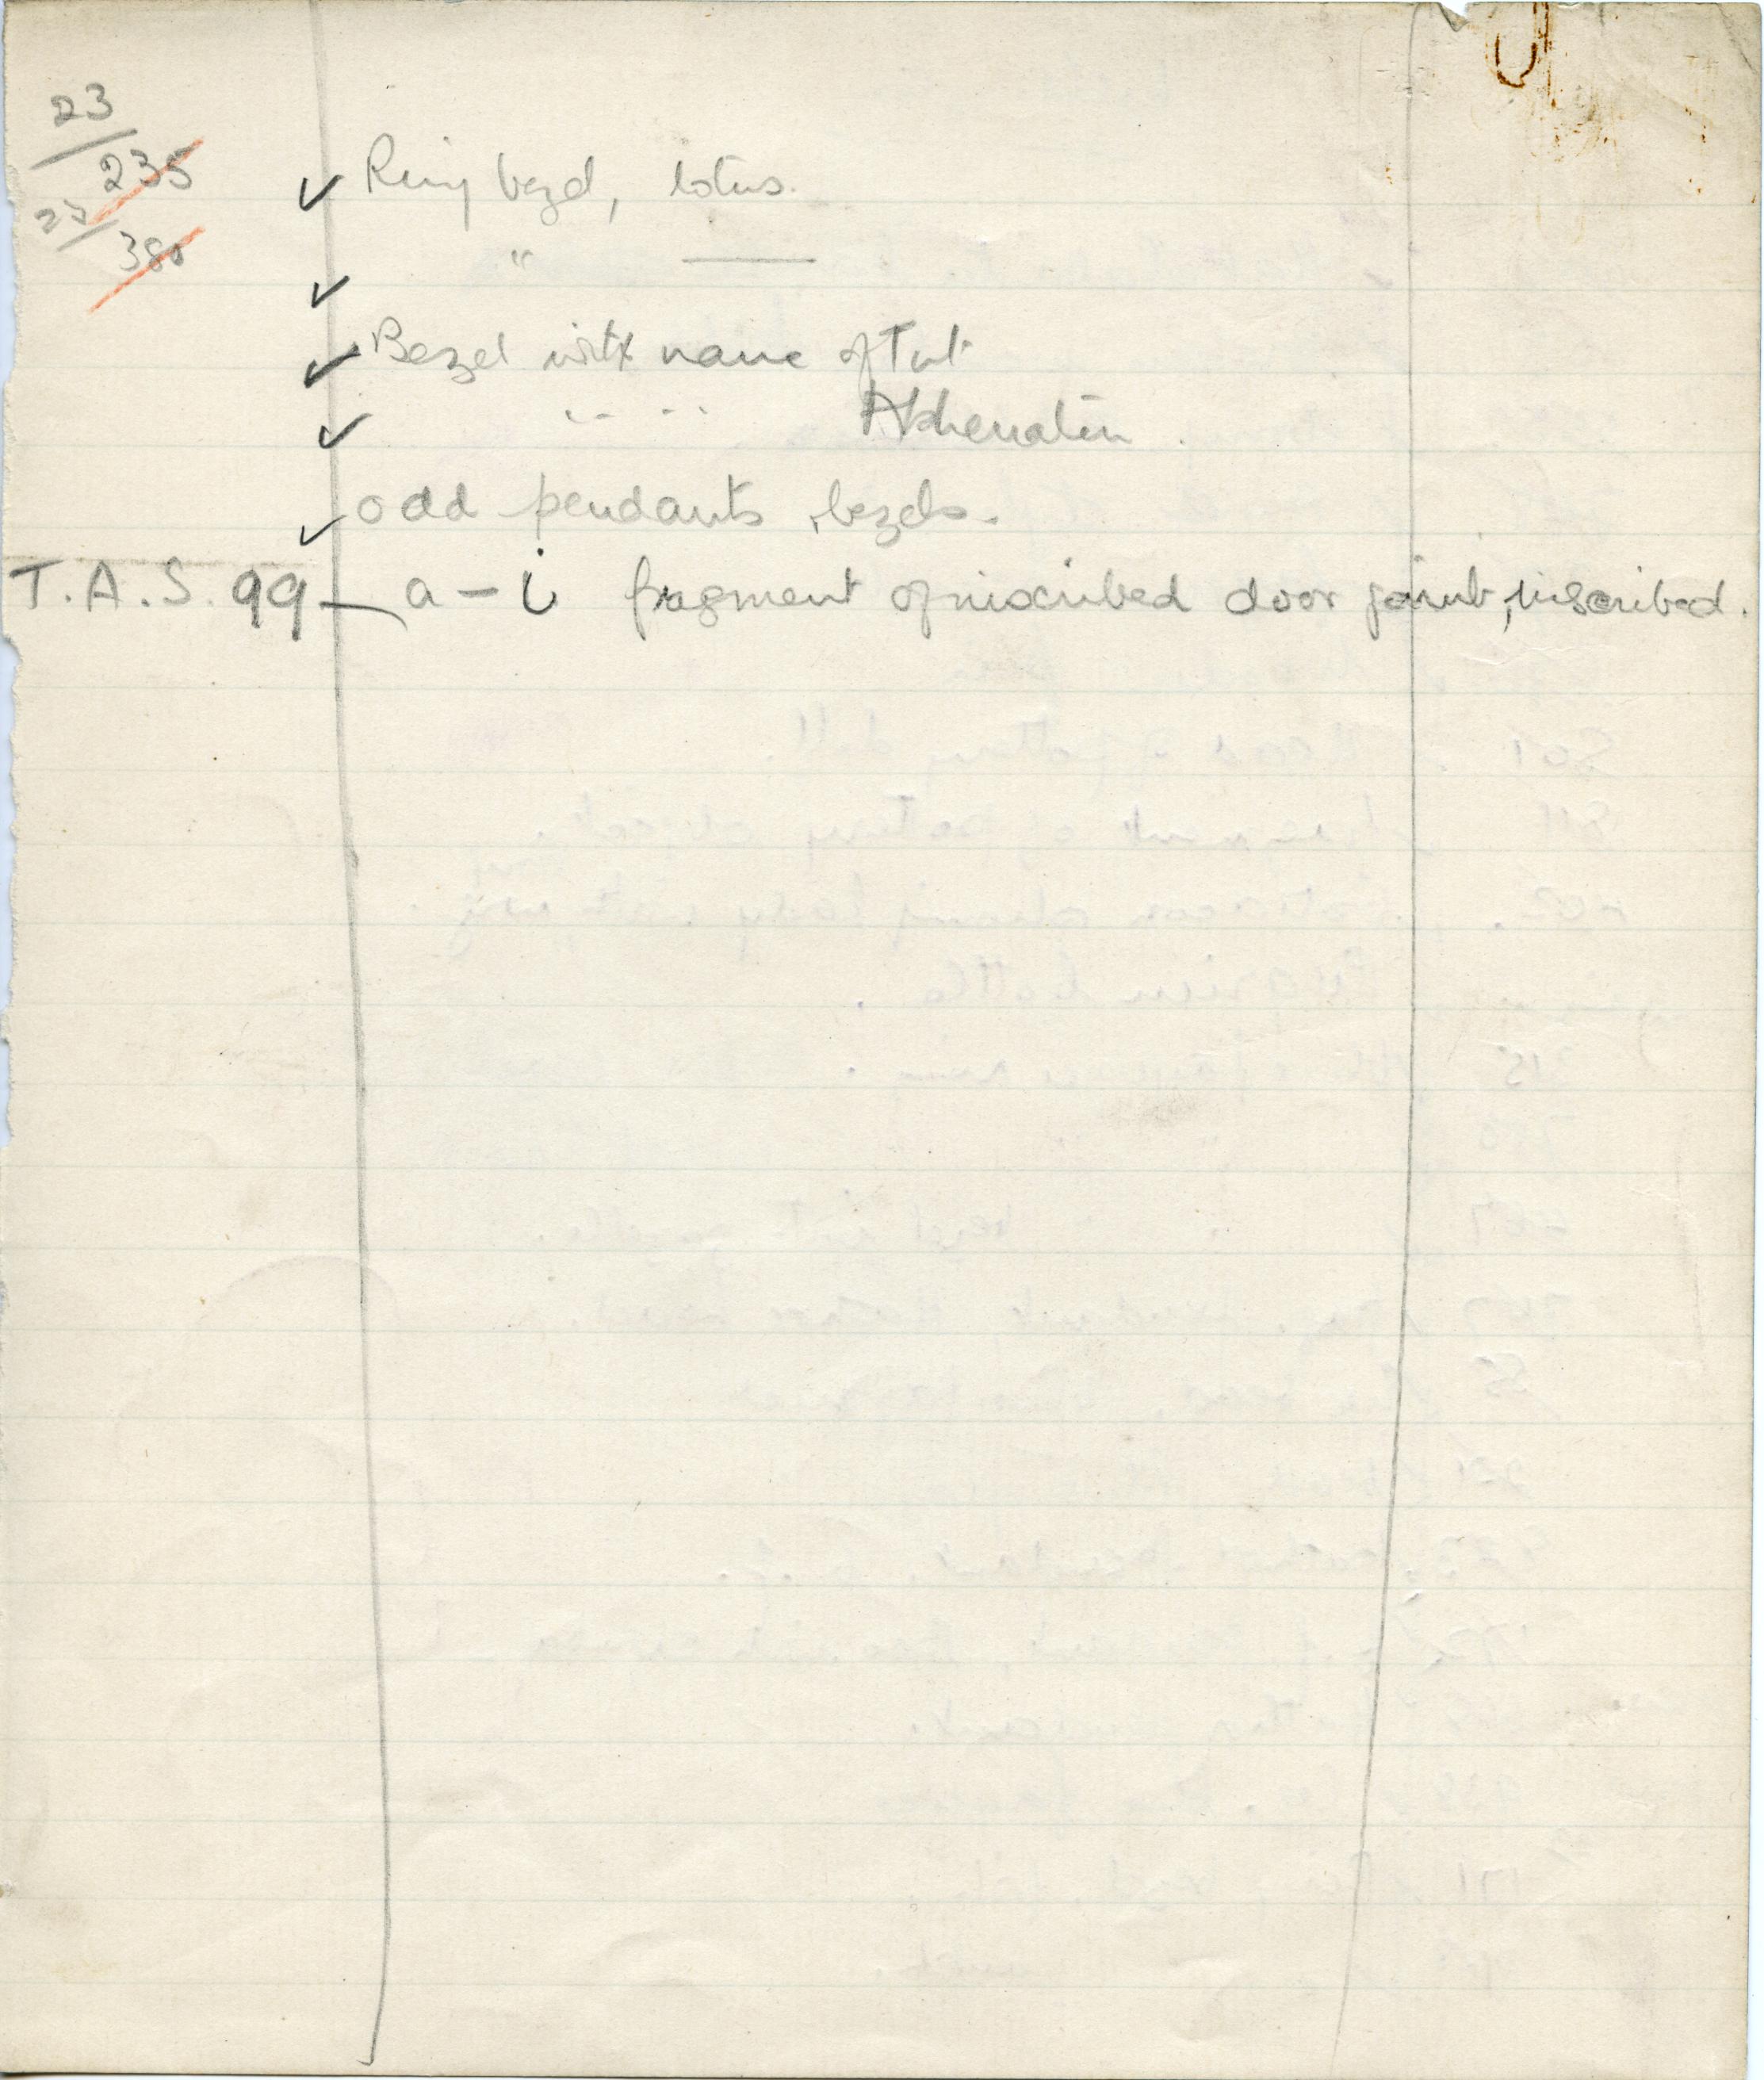 23/235 ✓ Ring bezel, lotus.
23/380 ✓ " ——
✓ Bezel with name of Tut
✓ " " " " Akhenaten.
✓ odd pendants, bezels.
T.A.S. 99 — a – i fragment of inscribed door jamb, inscribed.